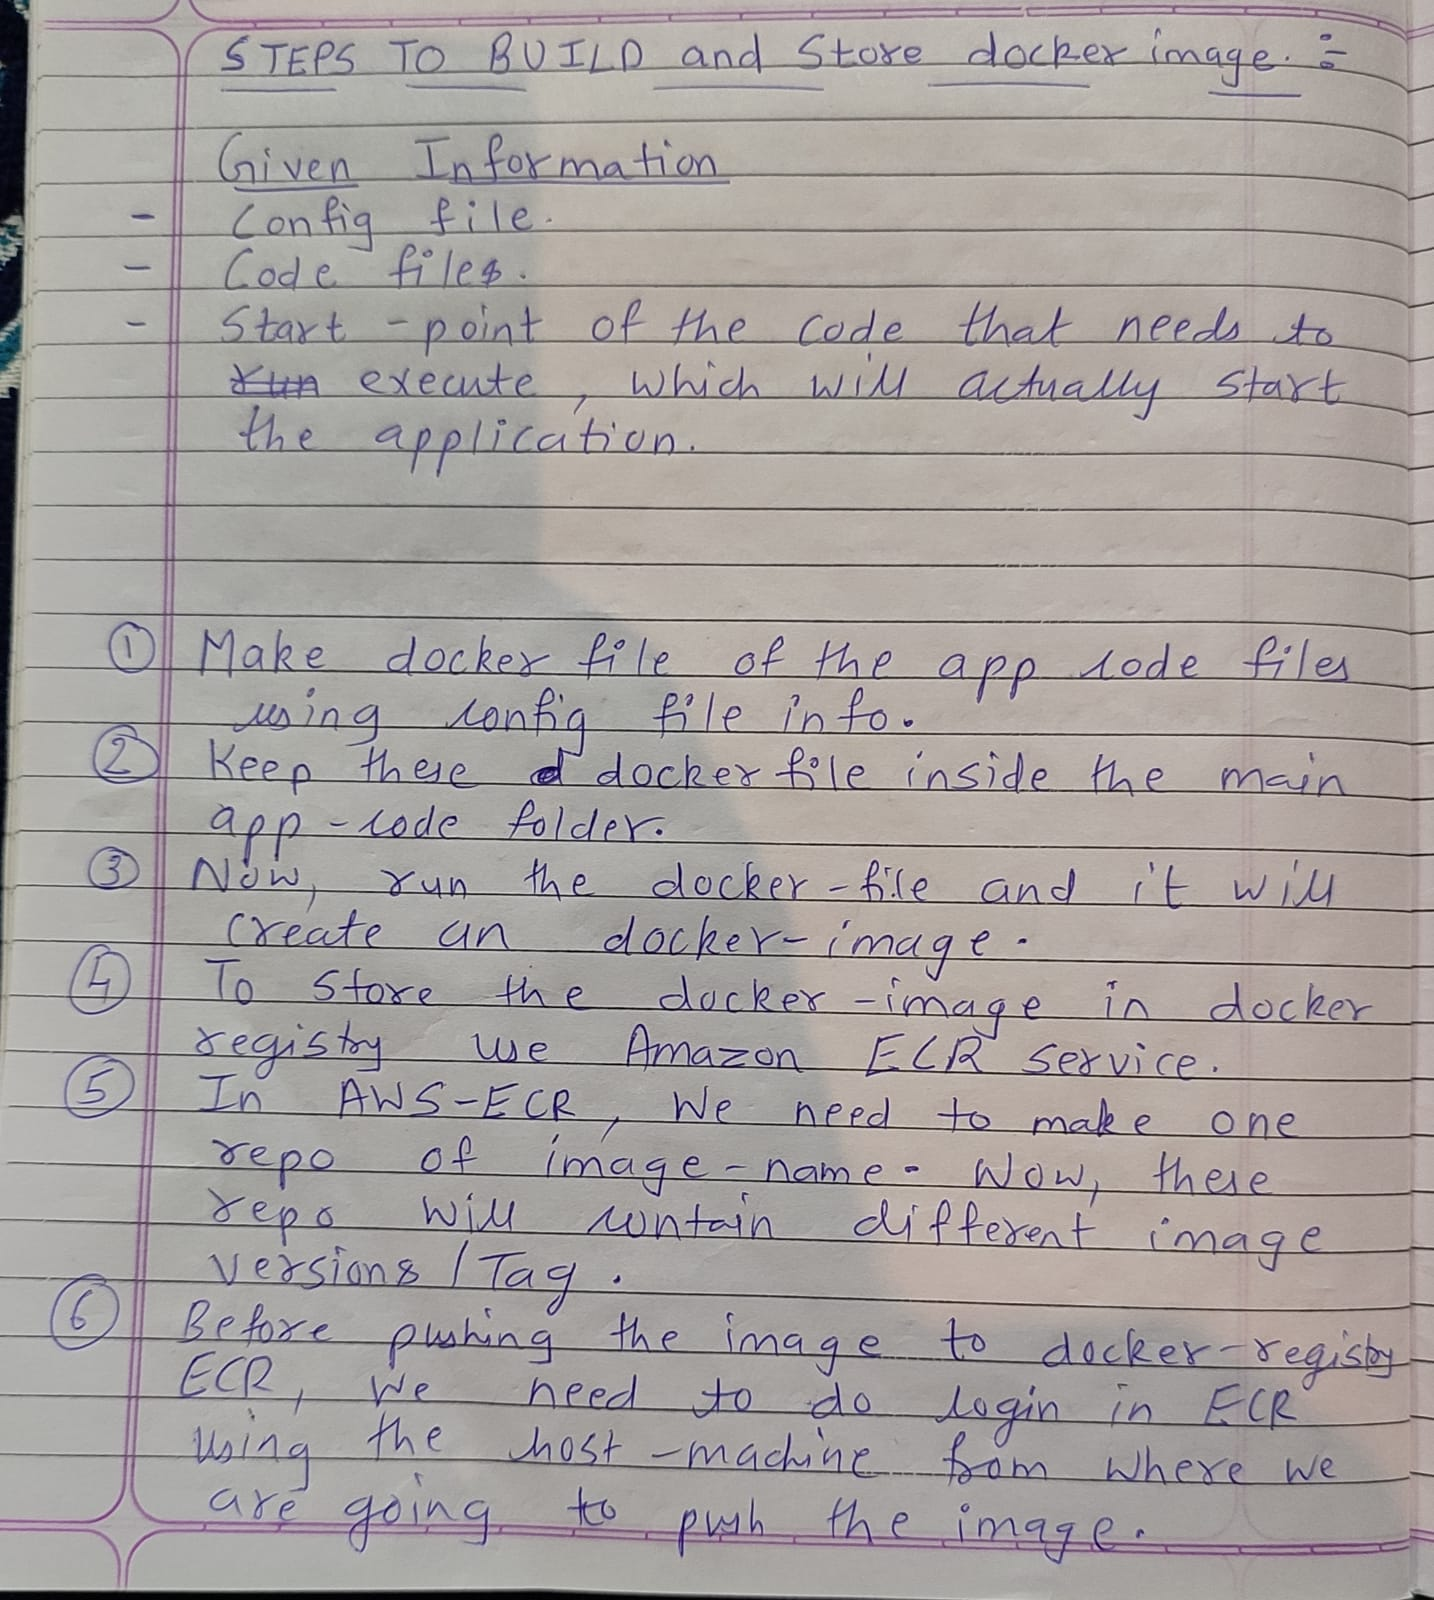 STEPS TO BUILD and Store docker image. :-
Given Information
- Config file.
- Code files.
- Start - point of the code that needs to
run execute, which will actually start
the application.
① Make docker file of the app code files
using config file info.
② Keep these d docker file inside the main
app - code folder.
③ Now, run the docker - file and it will
create an docker - image.
④ To store the docker - image in docker
registry use Amazon ECR service.
⑤ In AWS-ECR, We need to make one
repo of image - name. Now, these
repo will contain different image
versions / Tag.
⑥ Before pushing the image to docker-registry
ECR, We need to do login in ECR
using the host - machine from where we
are going to push the image.